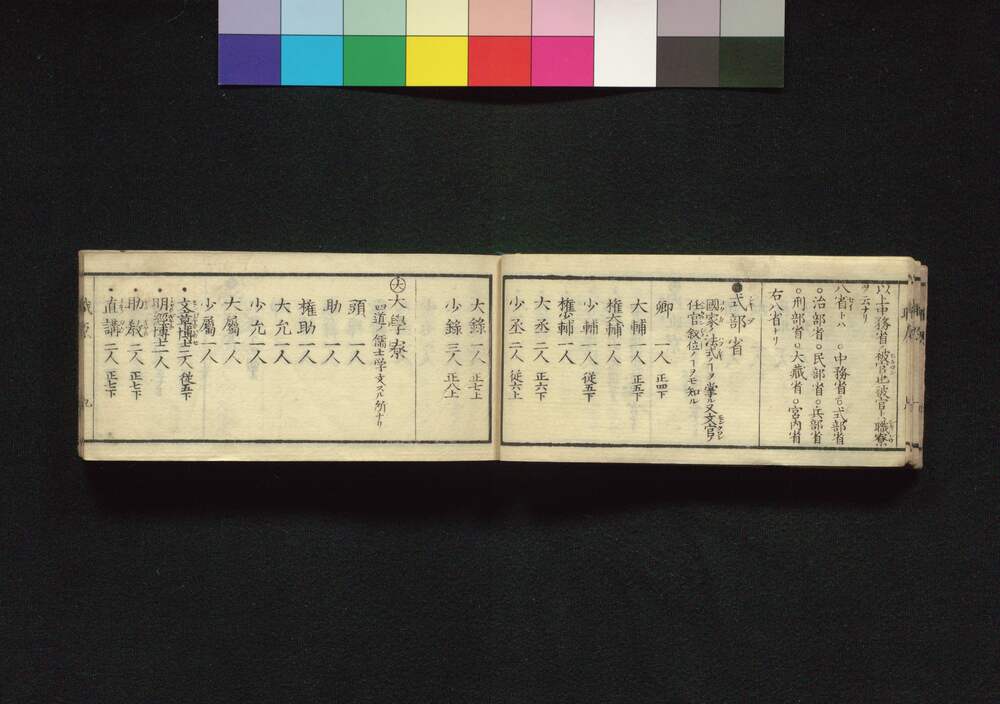 以上中務省ノ被官也被官ト職寮
ヲ云ナリ
八省トハ ○中務省○式部省
○治部省○民部省○兵部省
○刑部省○大藏省○宮内省
右八省ナリ
●式部省
國家ノ法式ノヿヲ掌ル又文官ヲ
任官叙位ノヿヲモ知ル
卿 一人 正四下
大輔 一人 正五下
権大輔一人
少輔一人 従五下
権少輔一人
大丞二人 正六下
少丞二人 従六上
大錄一人 正七上
少錄三人 正八上
大 大學寮
四道ノ儒士学文スル所ナリ
頭 一人
助 一人
権助一人
大允一人
少允一人
大屬一人
少屬一人
・文章博士二人 従五下
・明經博士一人
・助教二人 正七下
・直講二人 正七下
職原 九